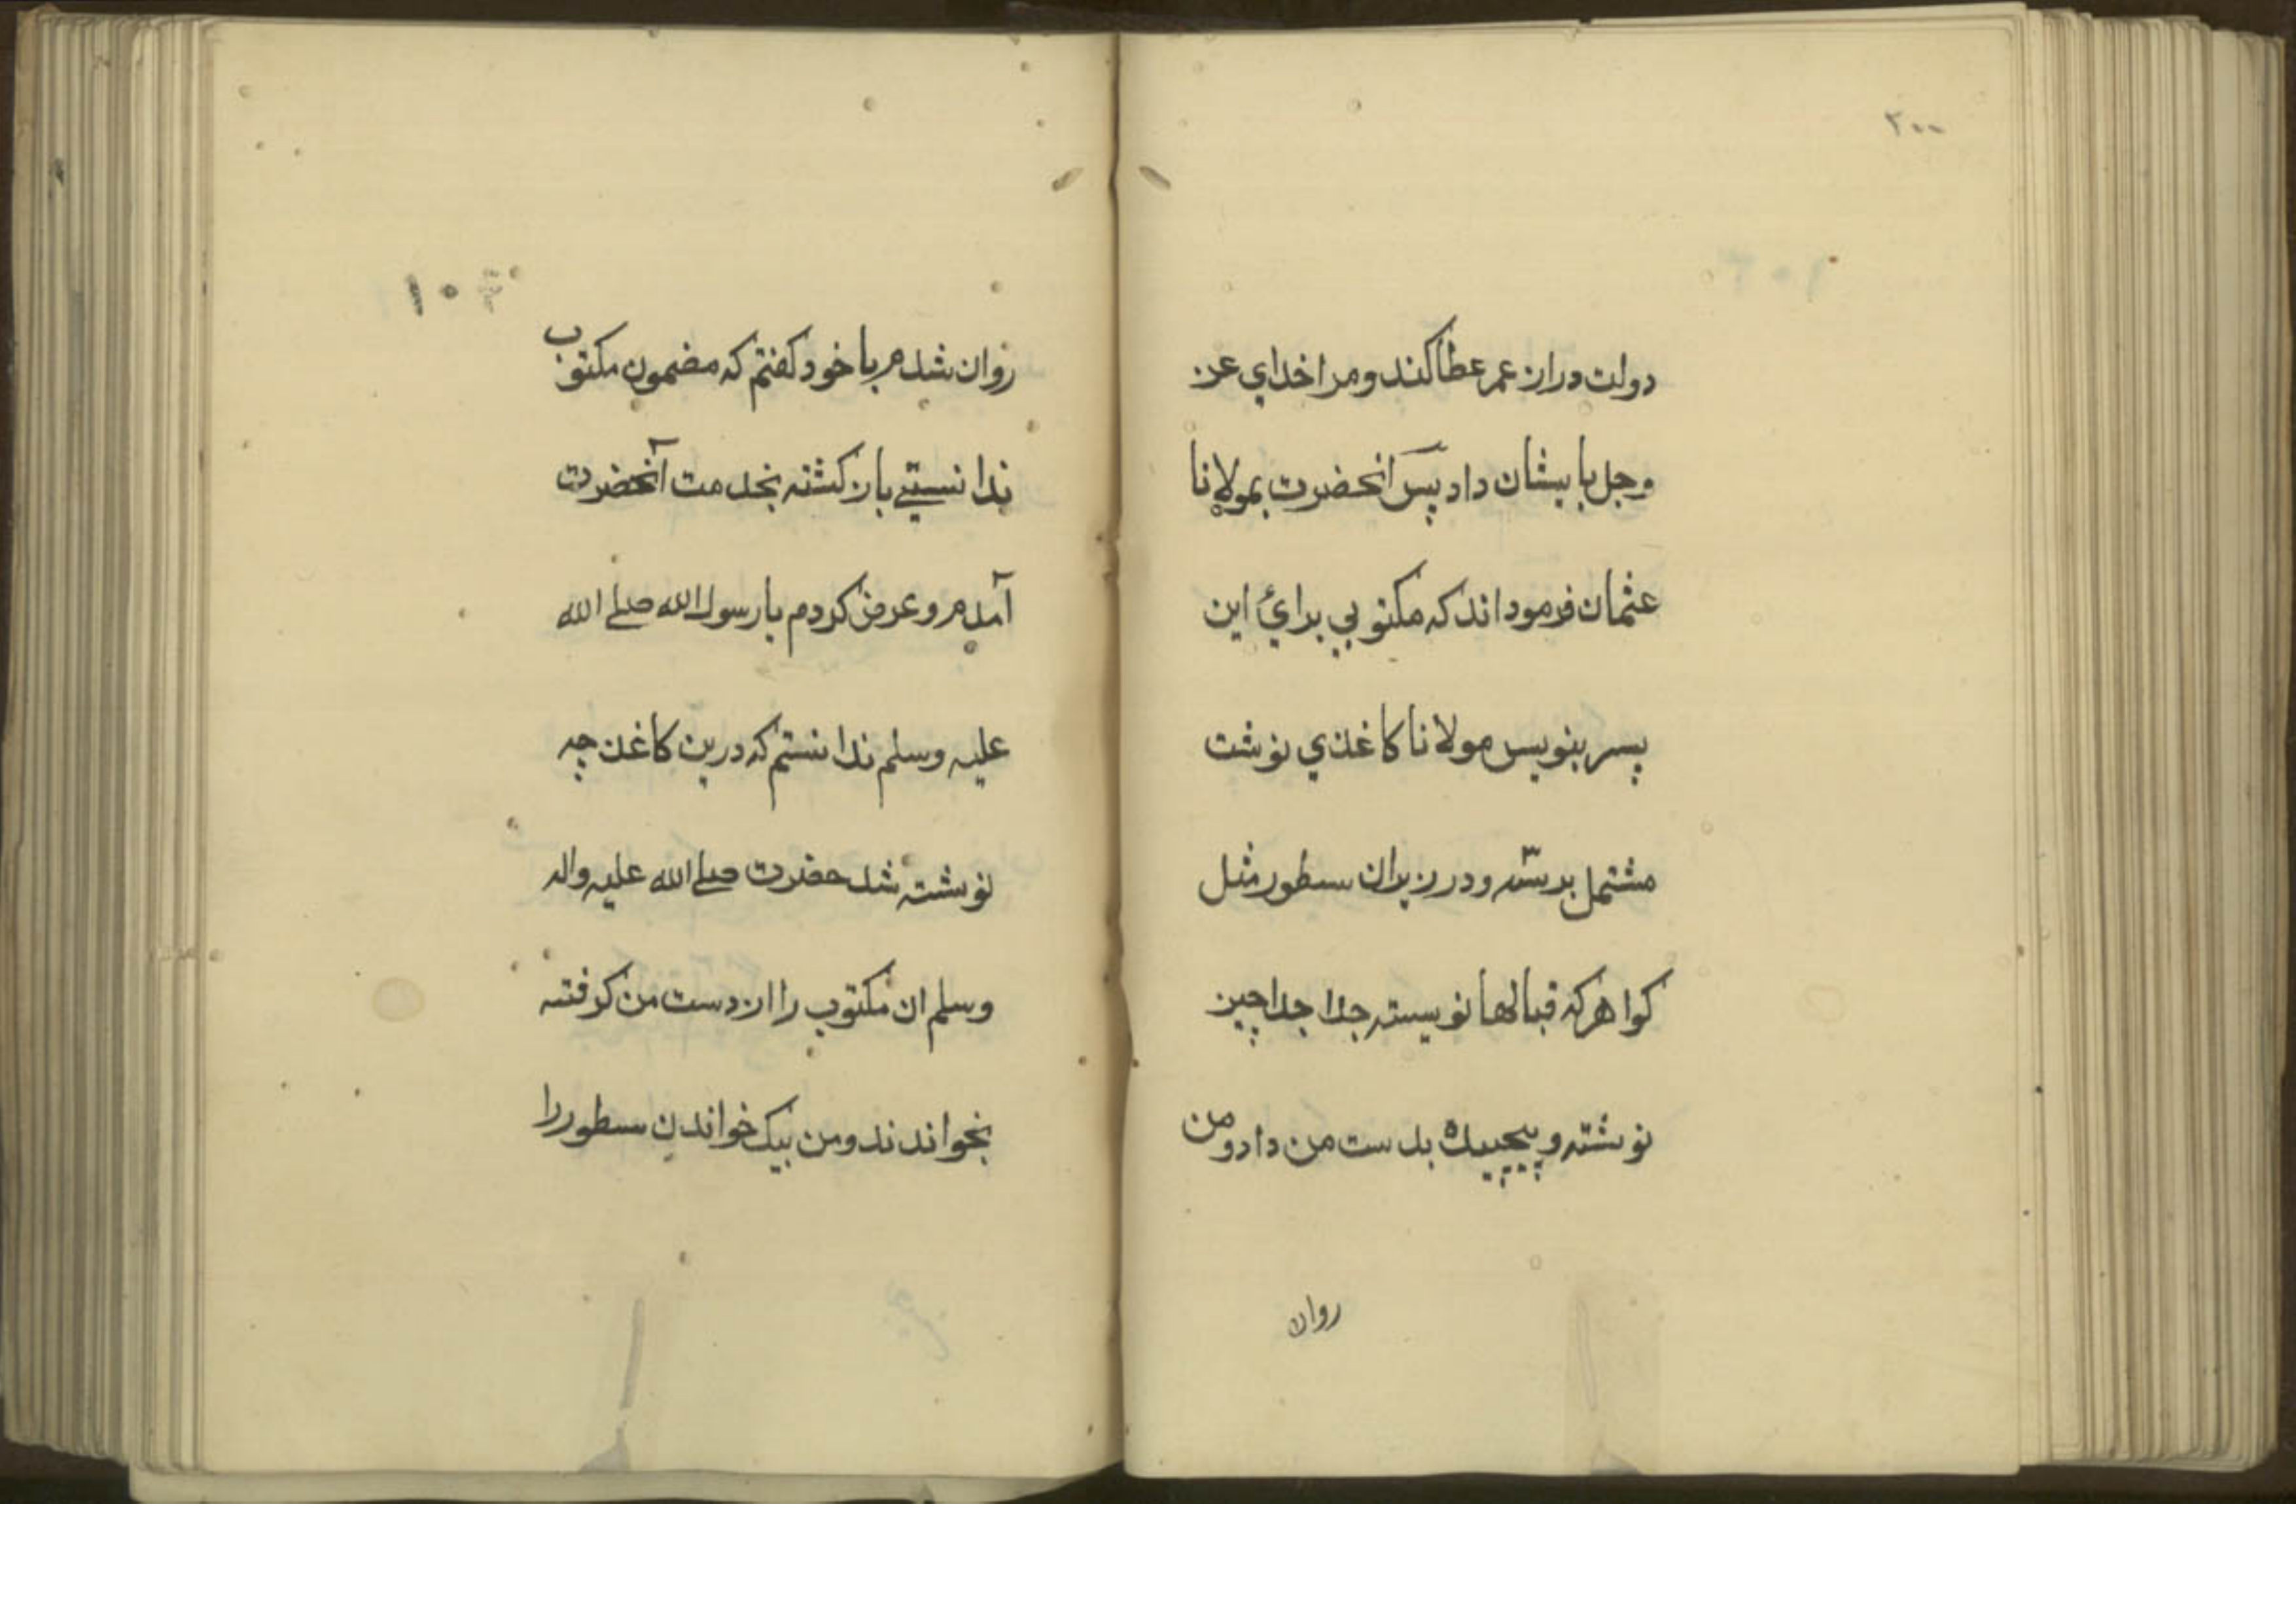 ۲۰۰
دولت دران عمر عطا کند و مرا خدای عز
وجل بایشان داد پس آنحضرت بمولانا
عثمان فرمود اند که مکتوبی برائ این
پسر بنویس مولانا کاغذی نوشت
مشتمل بر سّه و در زیران سطور مثل
کواهر که قبالها نویسته جدا جدا چین
نوشته و پیچیده بدست من داد و من
روان
روان شدم با خود کفتم که مضمون مکتوب
ندانستی باز کشته بخدمت آنحضرت
آمدم و عرض کردم یا رسول الله صلی الله
علیه وسلم ندانستم که درین کاغذ چه
نوشته شد حضرت صلی الله علیه واله
وسلم ان مکتوب را از دست من کرفته
بخواندند و من بیک خواندن سطور را